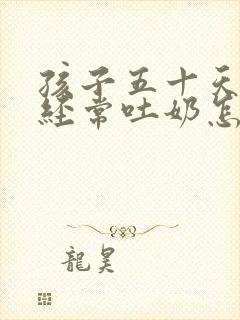 孩子五十天
经常吐奶怎
龍昊